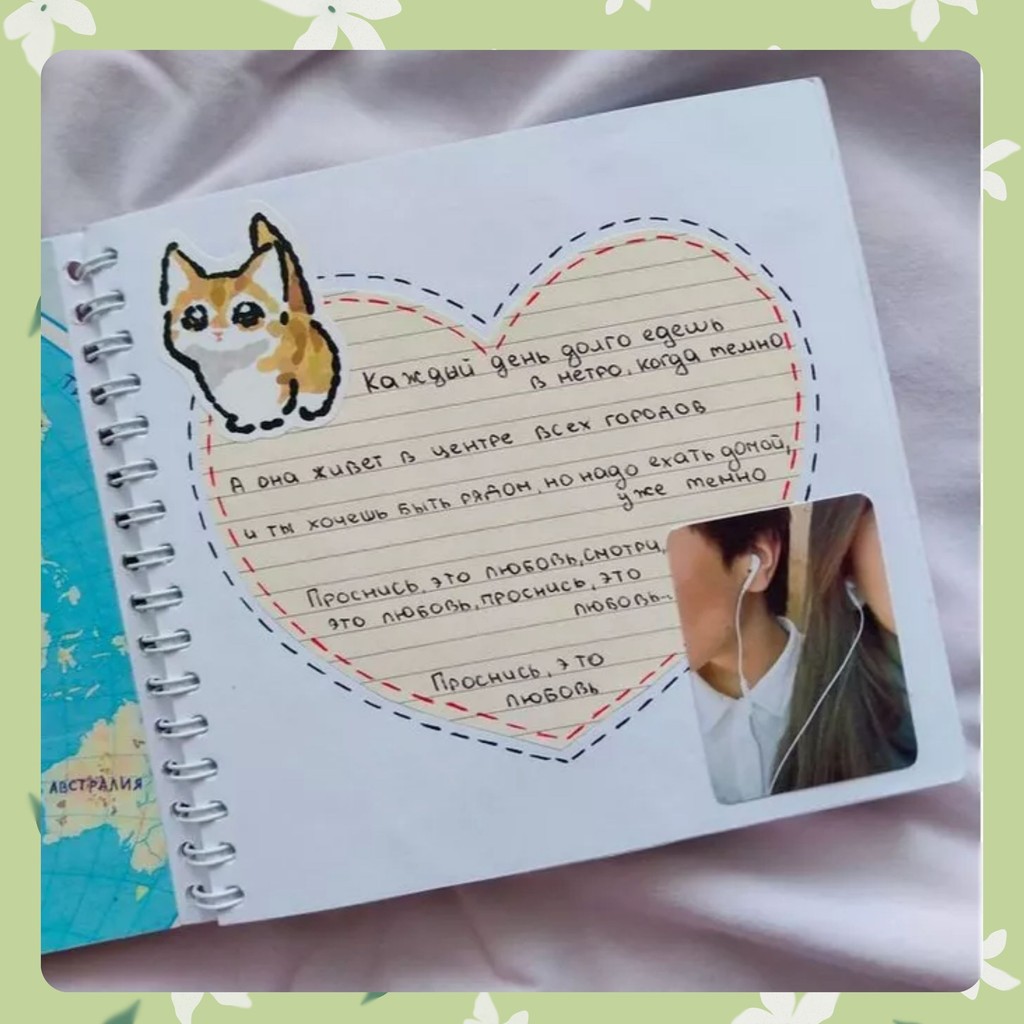 Каждый день долго едешь
в метро, когда темно
А она живет в центре всех городов
и ты хочешь быть рядом, но надо ехать домой,
уже темно
Проснись, это любовь, смотри,
это любовь, проснись, это
любовь..
Проснись, это
любовь
АВСТРАЛИЯ